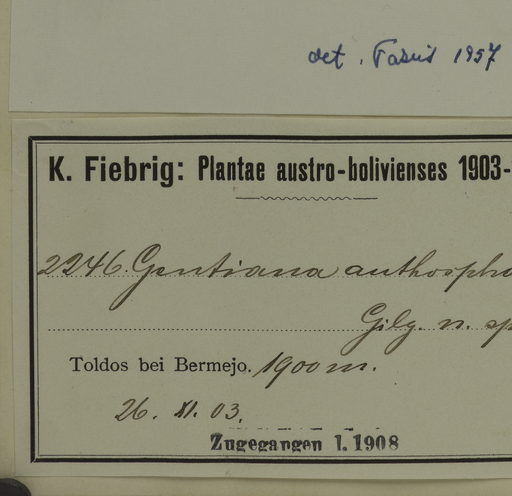 det. Fabris 1957
K. Fiebrig: Plantae austro-bolivienses 1903-
2246. Gentiana anthospha
Gilg. n. sp
Toldos bei Bermejo. 1900 m.
26. XI. 03.
Zugegangen 1. 1908